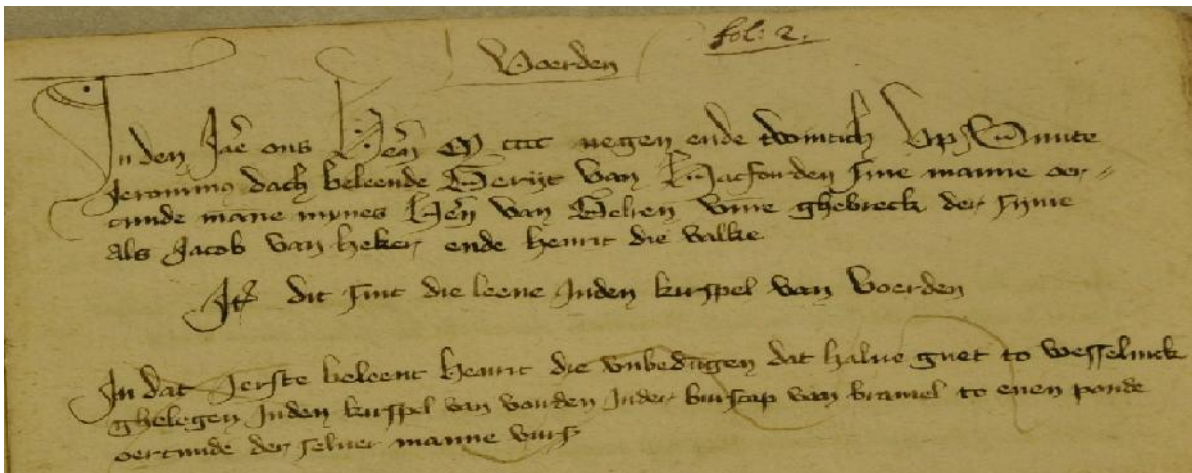 fol: 2.
Voerden
In den Jaẽ ons Heẽn M cccc negen ende twintich Vp Sunte
Jeronimus dach beleende Gerijt van Hacfourden sine manne oer-
cunde mãne mynes Heẽn van Gelren vmme ghebreck der sijnre
als Jacob van heker ende henric die valke
Itẽ dit sint die leene Inden kirspel van Voerden
In dat Jerste beleent henric die vnbedũgen dat halue guet to wesselinck
ghelegen Inden kirspel van vorden Inder burscap van bramel to enen ponde
oercunde der seluer manne vurs